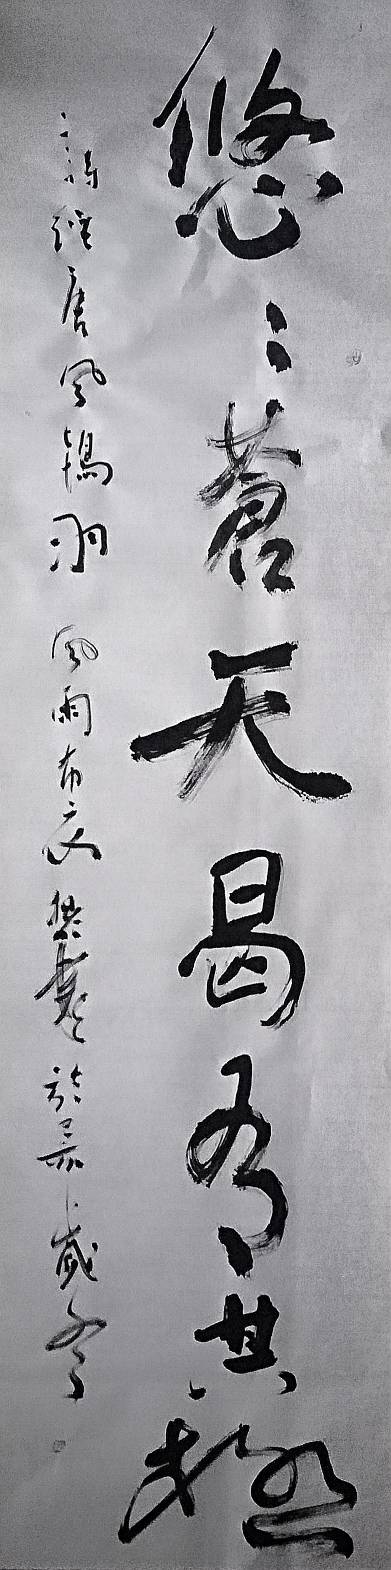 悠〻蒼天曷有其極
詩經唐風鴇羽風雨布衣樊於歲